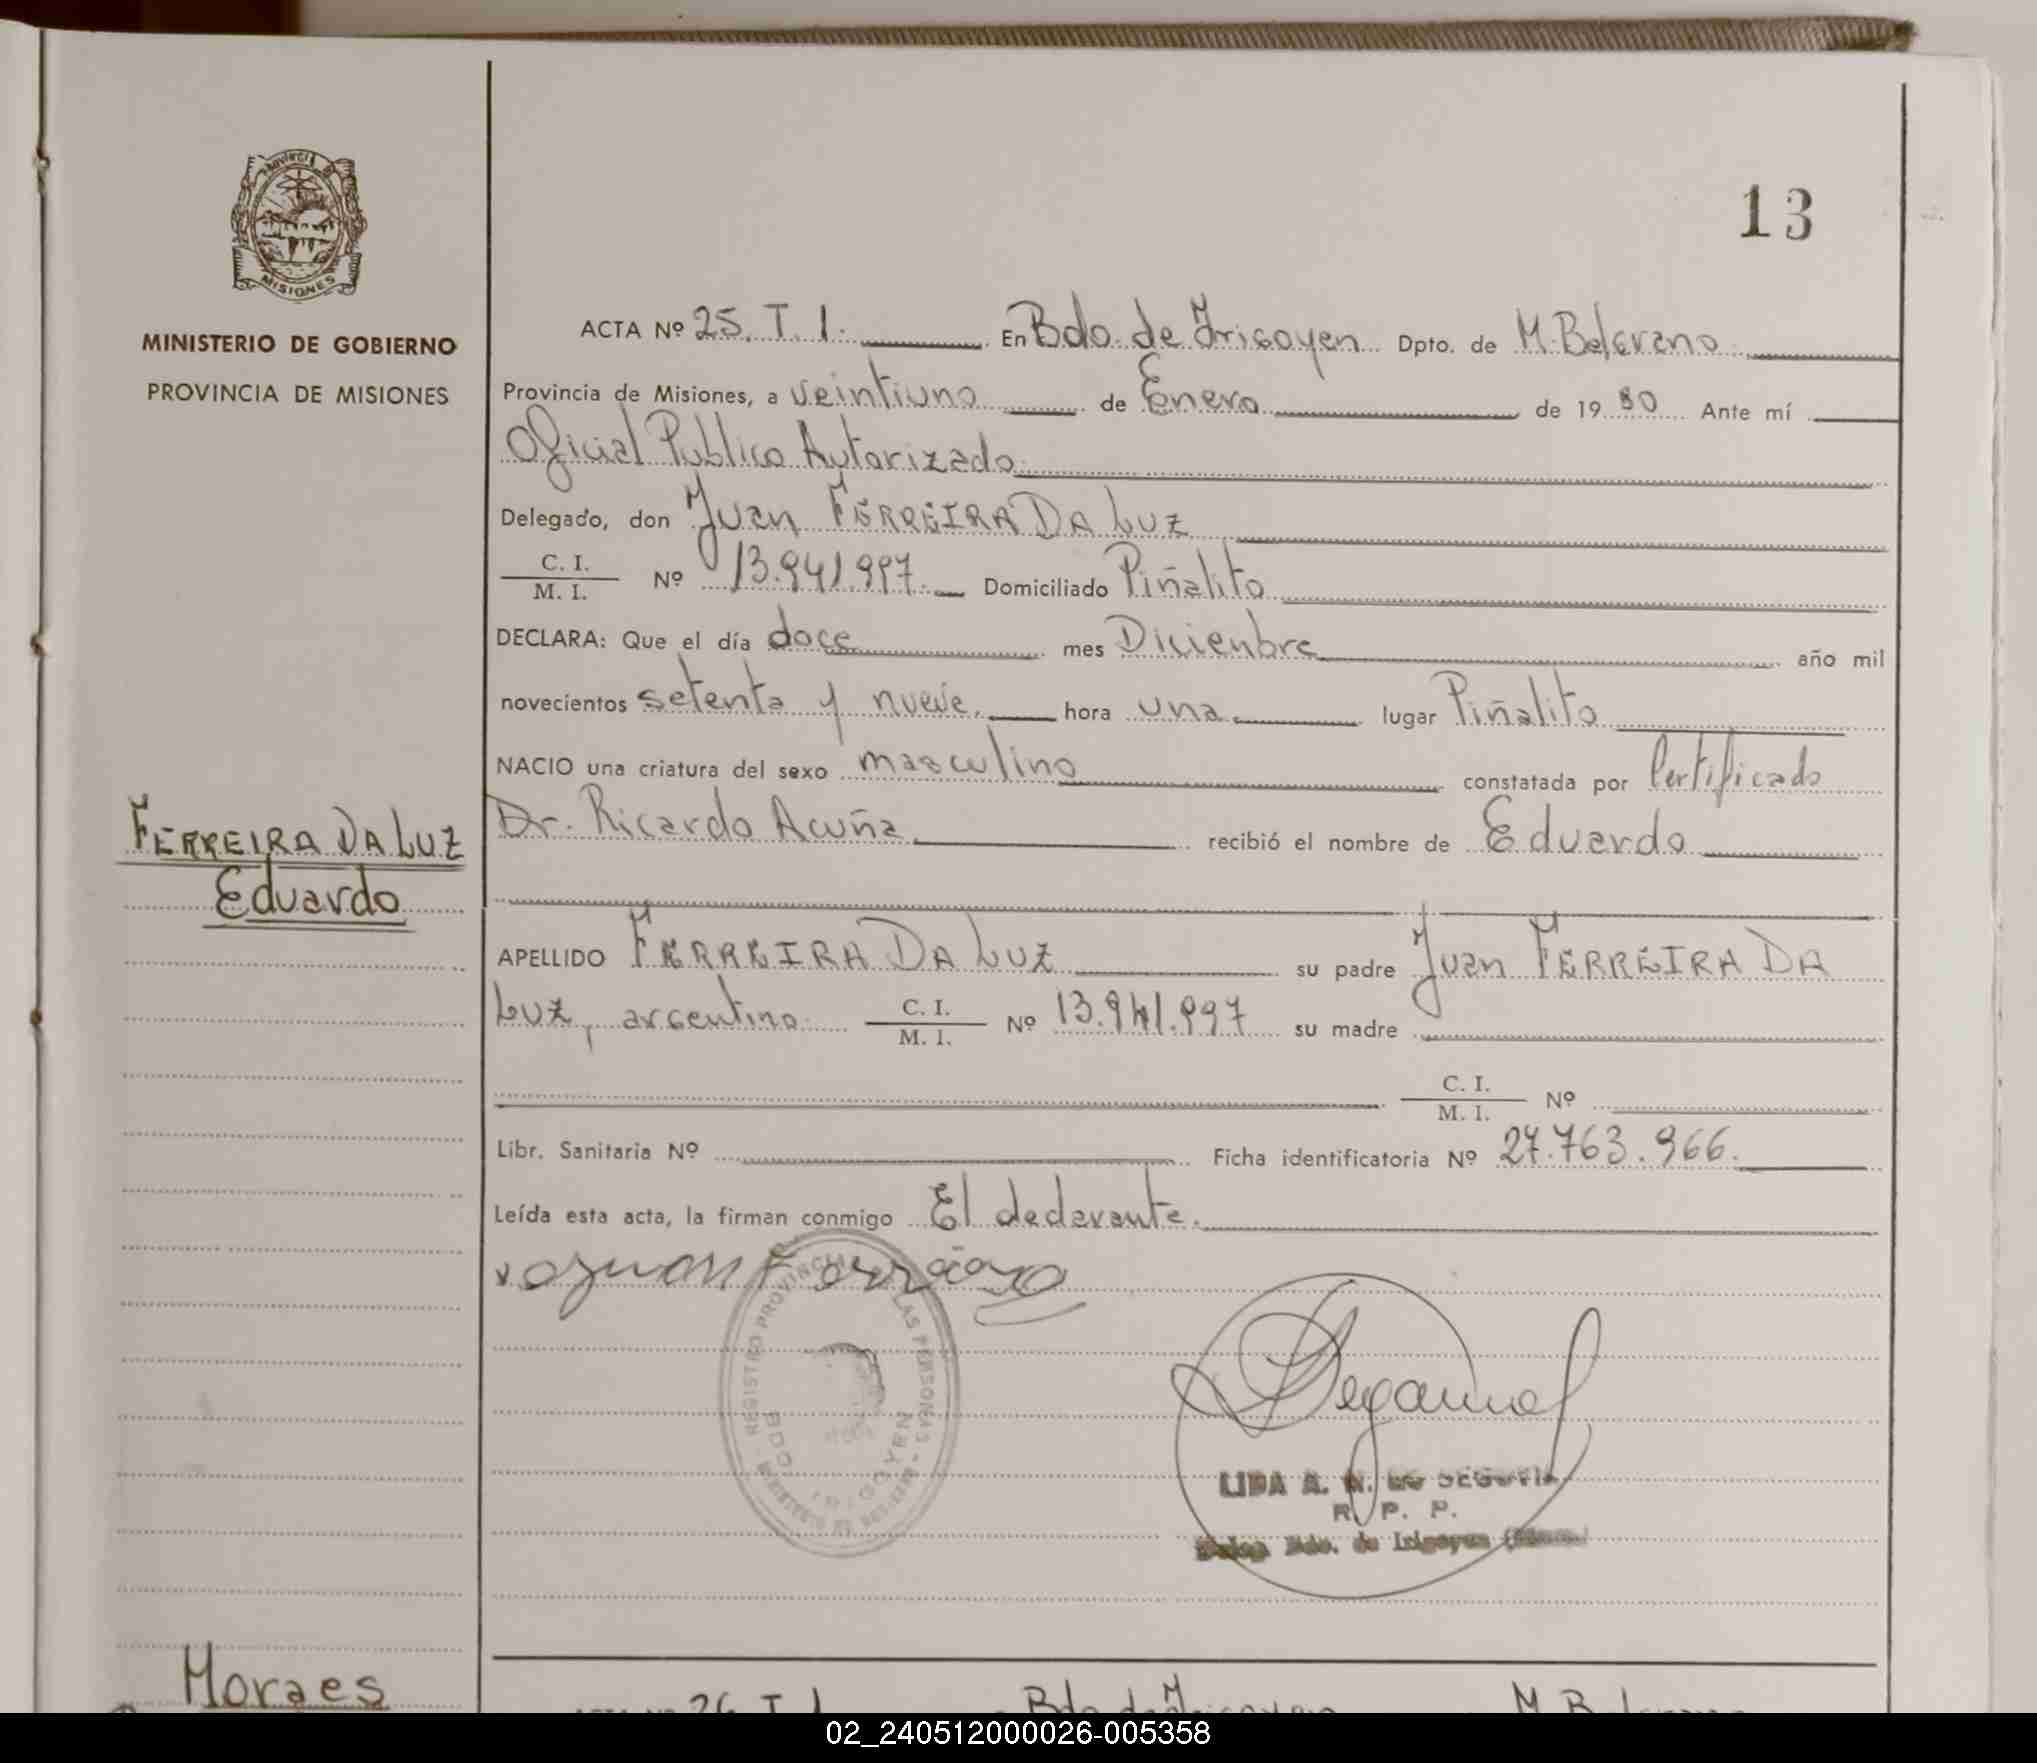 PROVINCIA DE
MISIONES
MINISTERIO DE GOBIERNO
PROVINCIA DE MISIONES
13
ACTA Nº 25. T. 1. En Bdo. de Irigoyen Dpto. de M. Belgrano
Provincia de Misiones, a veintiuno de Enero de 19 80 Ante mí
Oficial Publico Autorizado
Delegado, don Juan FERREIRA DA LUZ
C. I.
M. I. Nº 13.941.997. Domiciliado Piñalito
DECLARA: Que el día doce mes Diciembre año mil
novecientos setenta y nueve. hora una lugar Piñalito
NACIO una criatura del sexo masculino constatada por Certificado
Dr. Ricardo Acuña recibió el nombre de Eduardo
FERREIRA DA LUZ
Eduardo
APELLIDO FERREIRA DA LUZ su padre Juan FERREIRA DA
LUZ, argentino C. I.
M. I. Nº 13.941.997 su madre
C. I.
M. I. Nº
Libr. Sanitaria Nº Ficha identificatoria Nº 27.763.966.
Leída esta acta, la firman conmigo El declarante.
REGISTRO PROVINCIAL DE LAS PERSONAS
BDO. IRIGOYEN
LIDA A. N. DE SEGOVIA
R. P. P.
Bdo. de Irigoyen
Moraes
ACTA Nº 26. T. 1 Bdo. de Irigoyen M. Belgrano
02_240512000026-005358